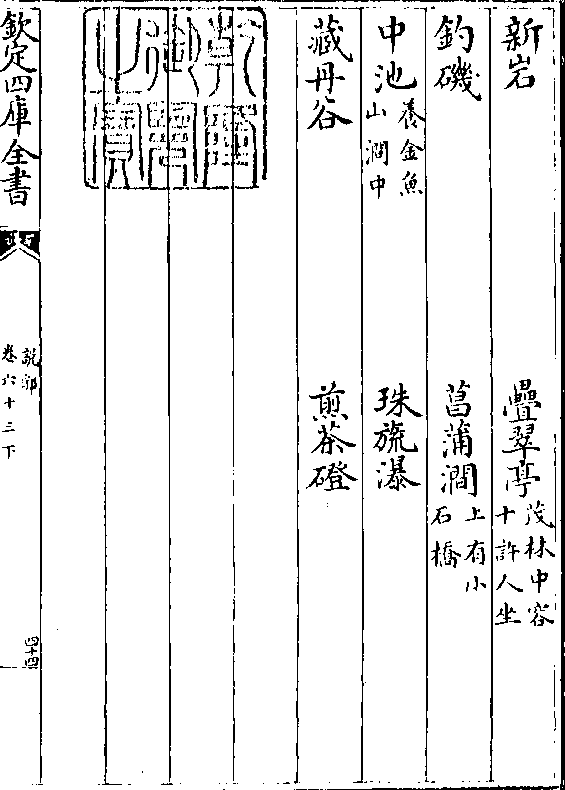 新岩　疊翠亭茂林中容十許人坐
釣磯　菖蒲澗上有小石橋
中池養金魚山澗中　珠旒瀑
藏丹谷　煎茶磴
乾隆御覽之寶
欽定四庫全書
說郛
卷六十三下
四十四